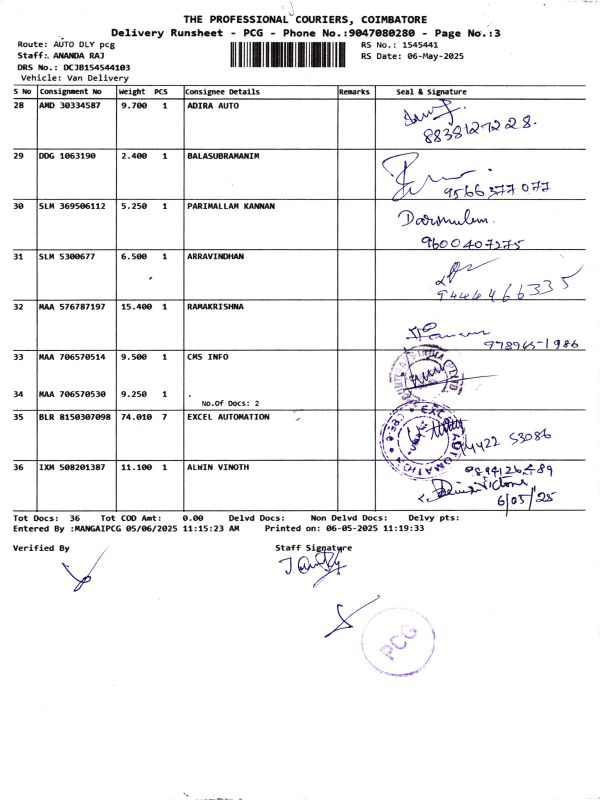 THE PROFESSIONAL COURIERS, COIMBATORE
Delivery Runsheet - PCG - Phone No.:9047080280 - Page No.:3
Route: AUTO DLY pcg RS No.: 1545441
Staff: ANANDA RAJ RS Date: 06-May-2025
DRS No.: DCJB154544103
Vehicle: Van Delivery
S No Consignment No Weight PCS Consignee Details Remarks Seal & Signature
28 AMD 30334587 9.700 1 ADIRA AUTO
8838127228.
29 DDG 1063190 2.400 1 BALASUBRAMANIM
9566377077
30 SLM 369506112 5.250 1 PARIMALLAM KANNAN
9600407275
31 SLM 5300677 6.500 1 ARRAVINDHAN
9444466335
32 MAA 576787197 15.400 1 RAMAKRISHNA
33 MAA 706570514 9.500 1 CMS INFO
34 MAA 706570530 9.250 1 .
No.Of Docs: 2
35 BLR 8150307098 74.010 7 EXCEL AUTOMATION
EXCEL AUTOMATION
CBE-6
36 IXM 508201387 11.100 1 ALWIN VINOTH
6/05/25
Tot Docs: 36 Tot COD Amt: 0.00 Delvd Docs: Non Delvd Docs: Delvy pts:
Entered By :MANGAIPCG 05/06/2025 11:15:23 AM Printed on: 06-05-2025 11:19:33
Verified By Staff Signature
PCG